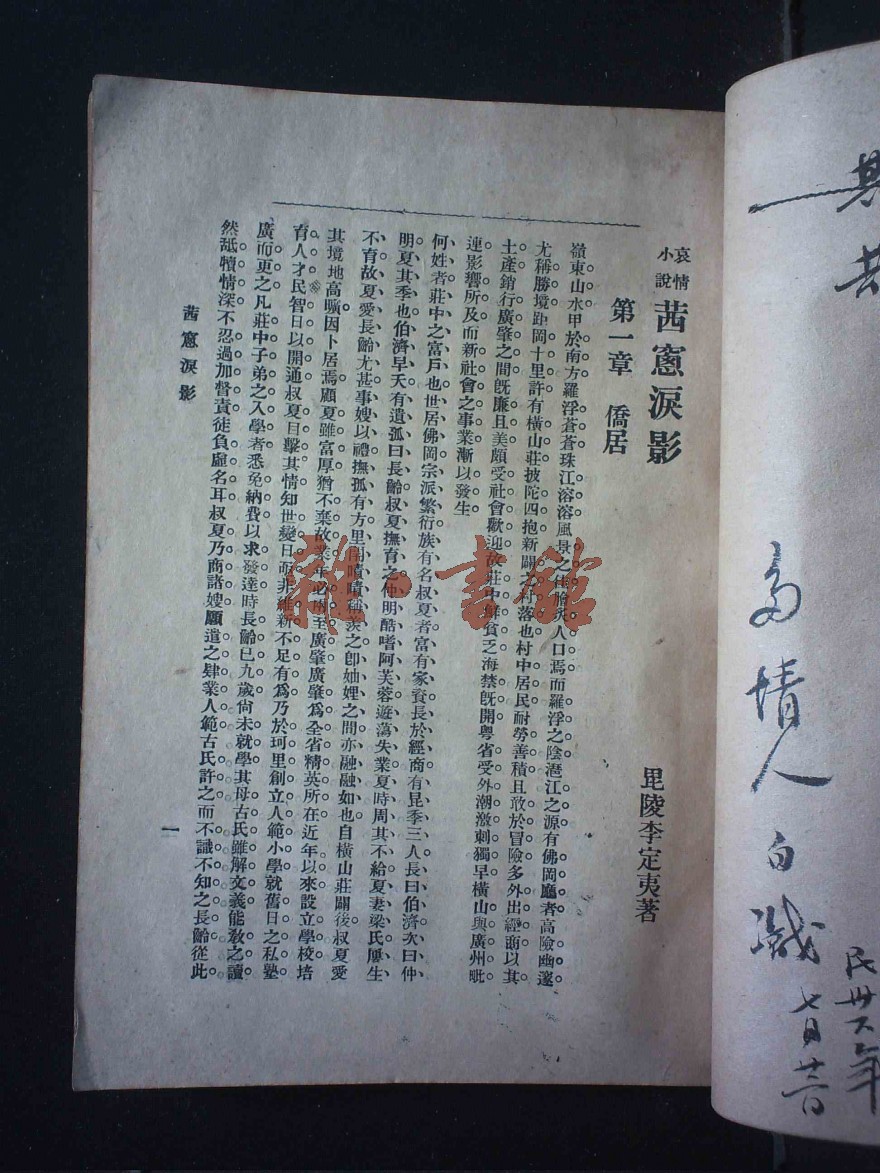 多情人白識
民卅六年
哀情
小說
茜窻淚影
第一章　僑居
毘陵李定夷著
嶺東山水甲於南方羅浮蒼蒼珠江溶溶風景之佳膾炙人口焉而羅浮之陰潖江之源有佛岡廳者高險幽邃
尤稱勝境距岡十里許有橫山莊披陀四抱新闢之村落也村中居民耐勞善積且敢於冒險多外出經商以其
土產銷行廣肇之間旣廉且美頗受社會歡迎故莊中鮮貧乏海禁旣開粵省受外潮激刺獨早橫山與廣州毗
連影響所及而新社會之事業漸以發生
何姓者莊中之富戶也世居佛岡宗派繁衍族有名叔夏者富有家資長於經商有昆季三人長曰伯濟次曰仲
明夏其季也伯濟早夭有遺孤曰長齡叔夏撫育之仲明酷嗜阿芙蓉遊蕩失業夏時周其不給夏妻梁氏屢生
不育故夏愛長齡尤甚事嫂以禮撫孤有方里閈嘖嘖稱羨之卽妯娌之間亦融融如也自橫山莊闢後叔夏愛
其境地高曠因卜居焉顧夏雖富厚猶不棄故業年必兩至廣肇廣肇爲全省精英所在近年以來設立學校培
育人才民智日以開通叔夏目擊其情知世變日亟非維新不足有爲乃於珂里創立人範小學就舊日之私塾
廣而更之凡莊中子弟之入學者悉免納費以求發達時長齡已九歲尙未就學其母古氏雖解文義能敎之讀
然舐犢情深不忍過加督責徒負虛名耳叔夏乃商諸嫂願遣之肄業人範古氏許之而不識不知之長齡從此
茜窻淚影
一
雜·書館